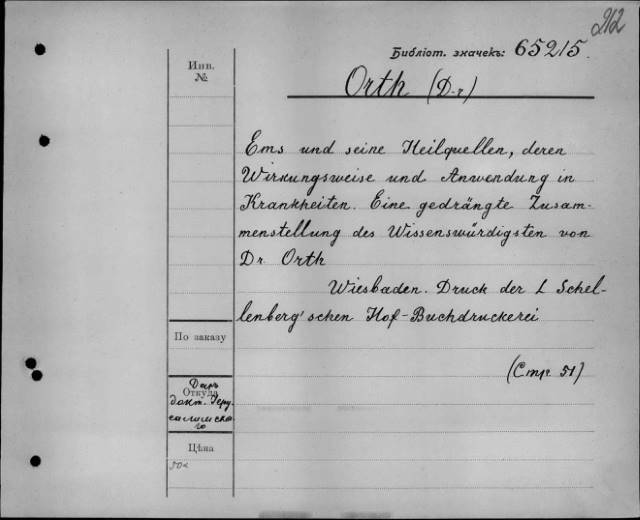 212
Библіот. значекъ: 65215.
Инв.
№
Orth (D-r)
Ems und seine Heilquellen, deren
Wirkungsweise und Anwendung in
Krankheiten. Eine gedrängte Zusam-
menstellung des Wissenswürdigsten von
Dr Orth
Wiesbaden. Druck der L Schel-
lenberg'schen Hof-Buchdruckerei
По заказу
(Стр 51)
Откуда
Даръ
докт. Іеру-
салимска-
го
Цѣна
50к